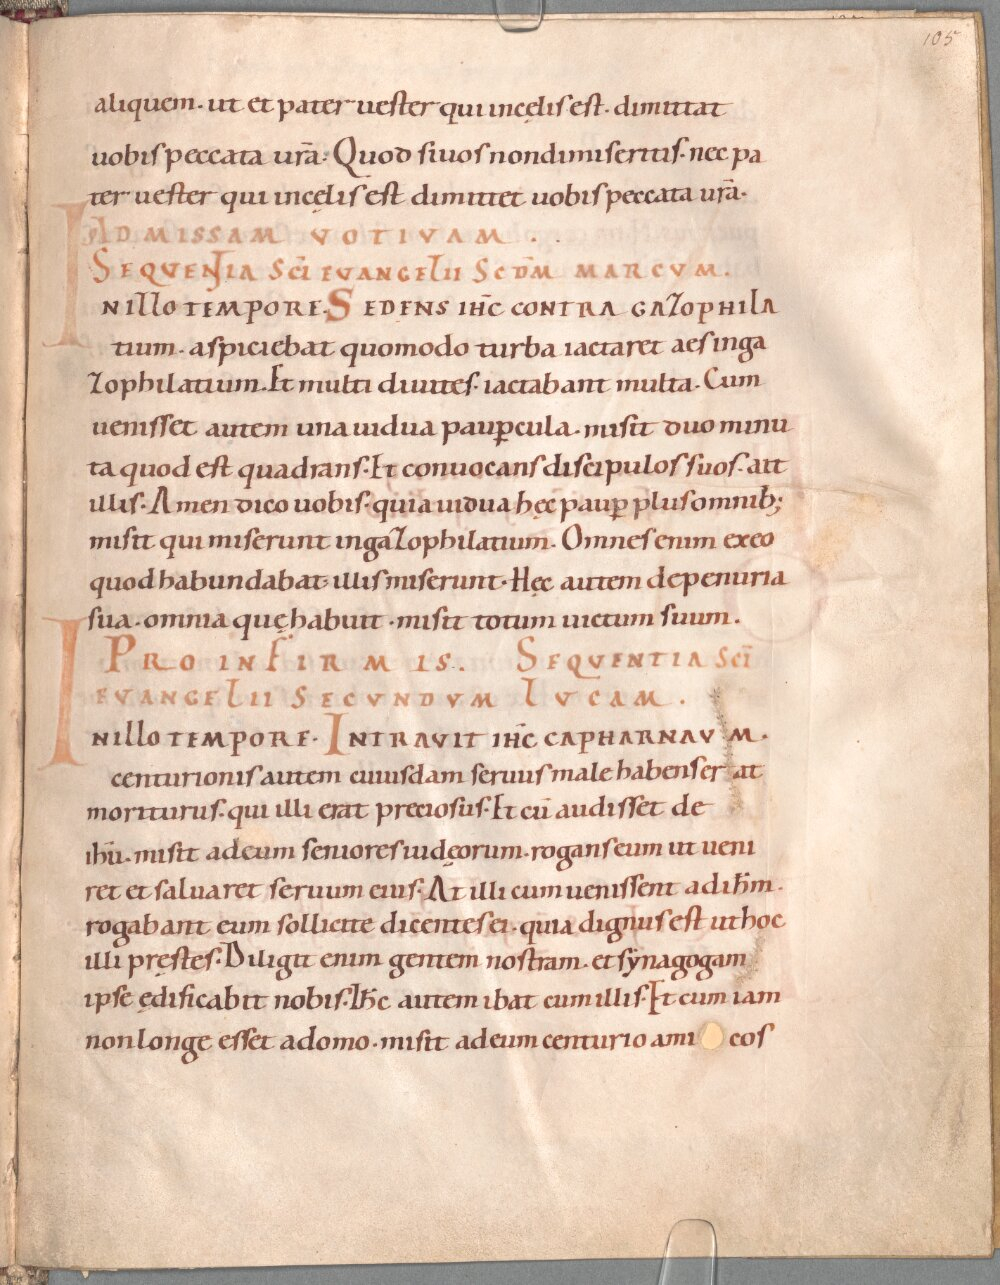 105
aliquem. ut et pater uester qui in cęlis est. dimittat
uobis peccata ura̅. Quod si uos non dimiseritis. nec pa
ter uester qui in cęlis est dimittet uobis peccata ura̅.
AD MISSAM VOTIVAM.
SEQVENTIA SC̅I EVANGELII SCDM̅ MARCVM.
IN ILLO TEMPORE. SEDENS IHC̅ CONTRA GAZOPHILA
tium. aspiciebat quomodo turba iactaret aes in ga
zophilatium. Et multi diuites. iactabant multa. Cum
uenisset autem una uidua paup̲cula. misit duo minu
ta quod est quadrans. Et conuocans discipulos suos. ait
illis. Amen dico uobis. quia uidua hęc paup̲ plus omnib;
misit qui miserunt in gazophilatium. Omnes enim ex eo
quod habundabat. illis miserunt. Hęc autem de penuria
sua. omnia quę habuit. misit totum uictum suum.
PRO INFIRMIS. SEQVENTIA SC̅I
EVANGELII SECVNDVM LVCAM.
IN ILLO TEMPORE. INTRAVIT IHC̅ CAPHARNAVM.
centurionis autem cuiusdam seruus male habens erat
moriturus. qui illi erat preciosus. Et cu̅ audisset de
ihu̅. misit ad eum seniores iudęorum. rogans eum ut ueni
ret et saluaret seruum eius. At illi cum uenissent ad ihm̅.
rogabant eum sollicite dicentes ei. quia dignus est ut hoc
illi pręstes. Diligit enim gentem nostram. et synagogam
ipse ędificabit nobis. Ihc̅ autem ibat cum illis. Et cum iam
non longe esset a domo. misit ad eum centurio ami cos